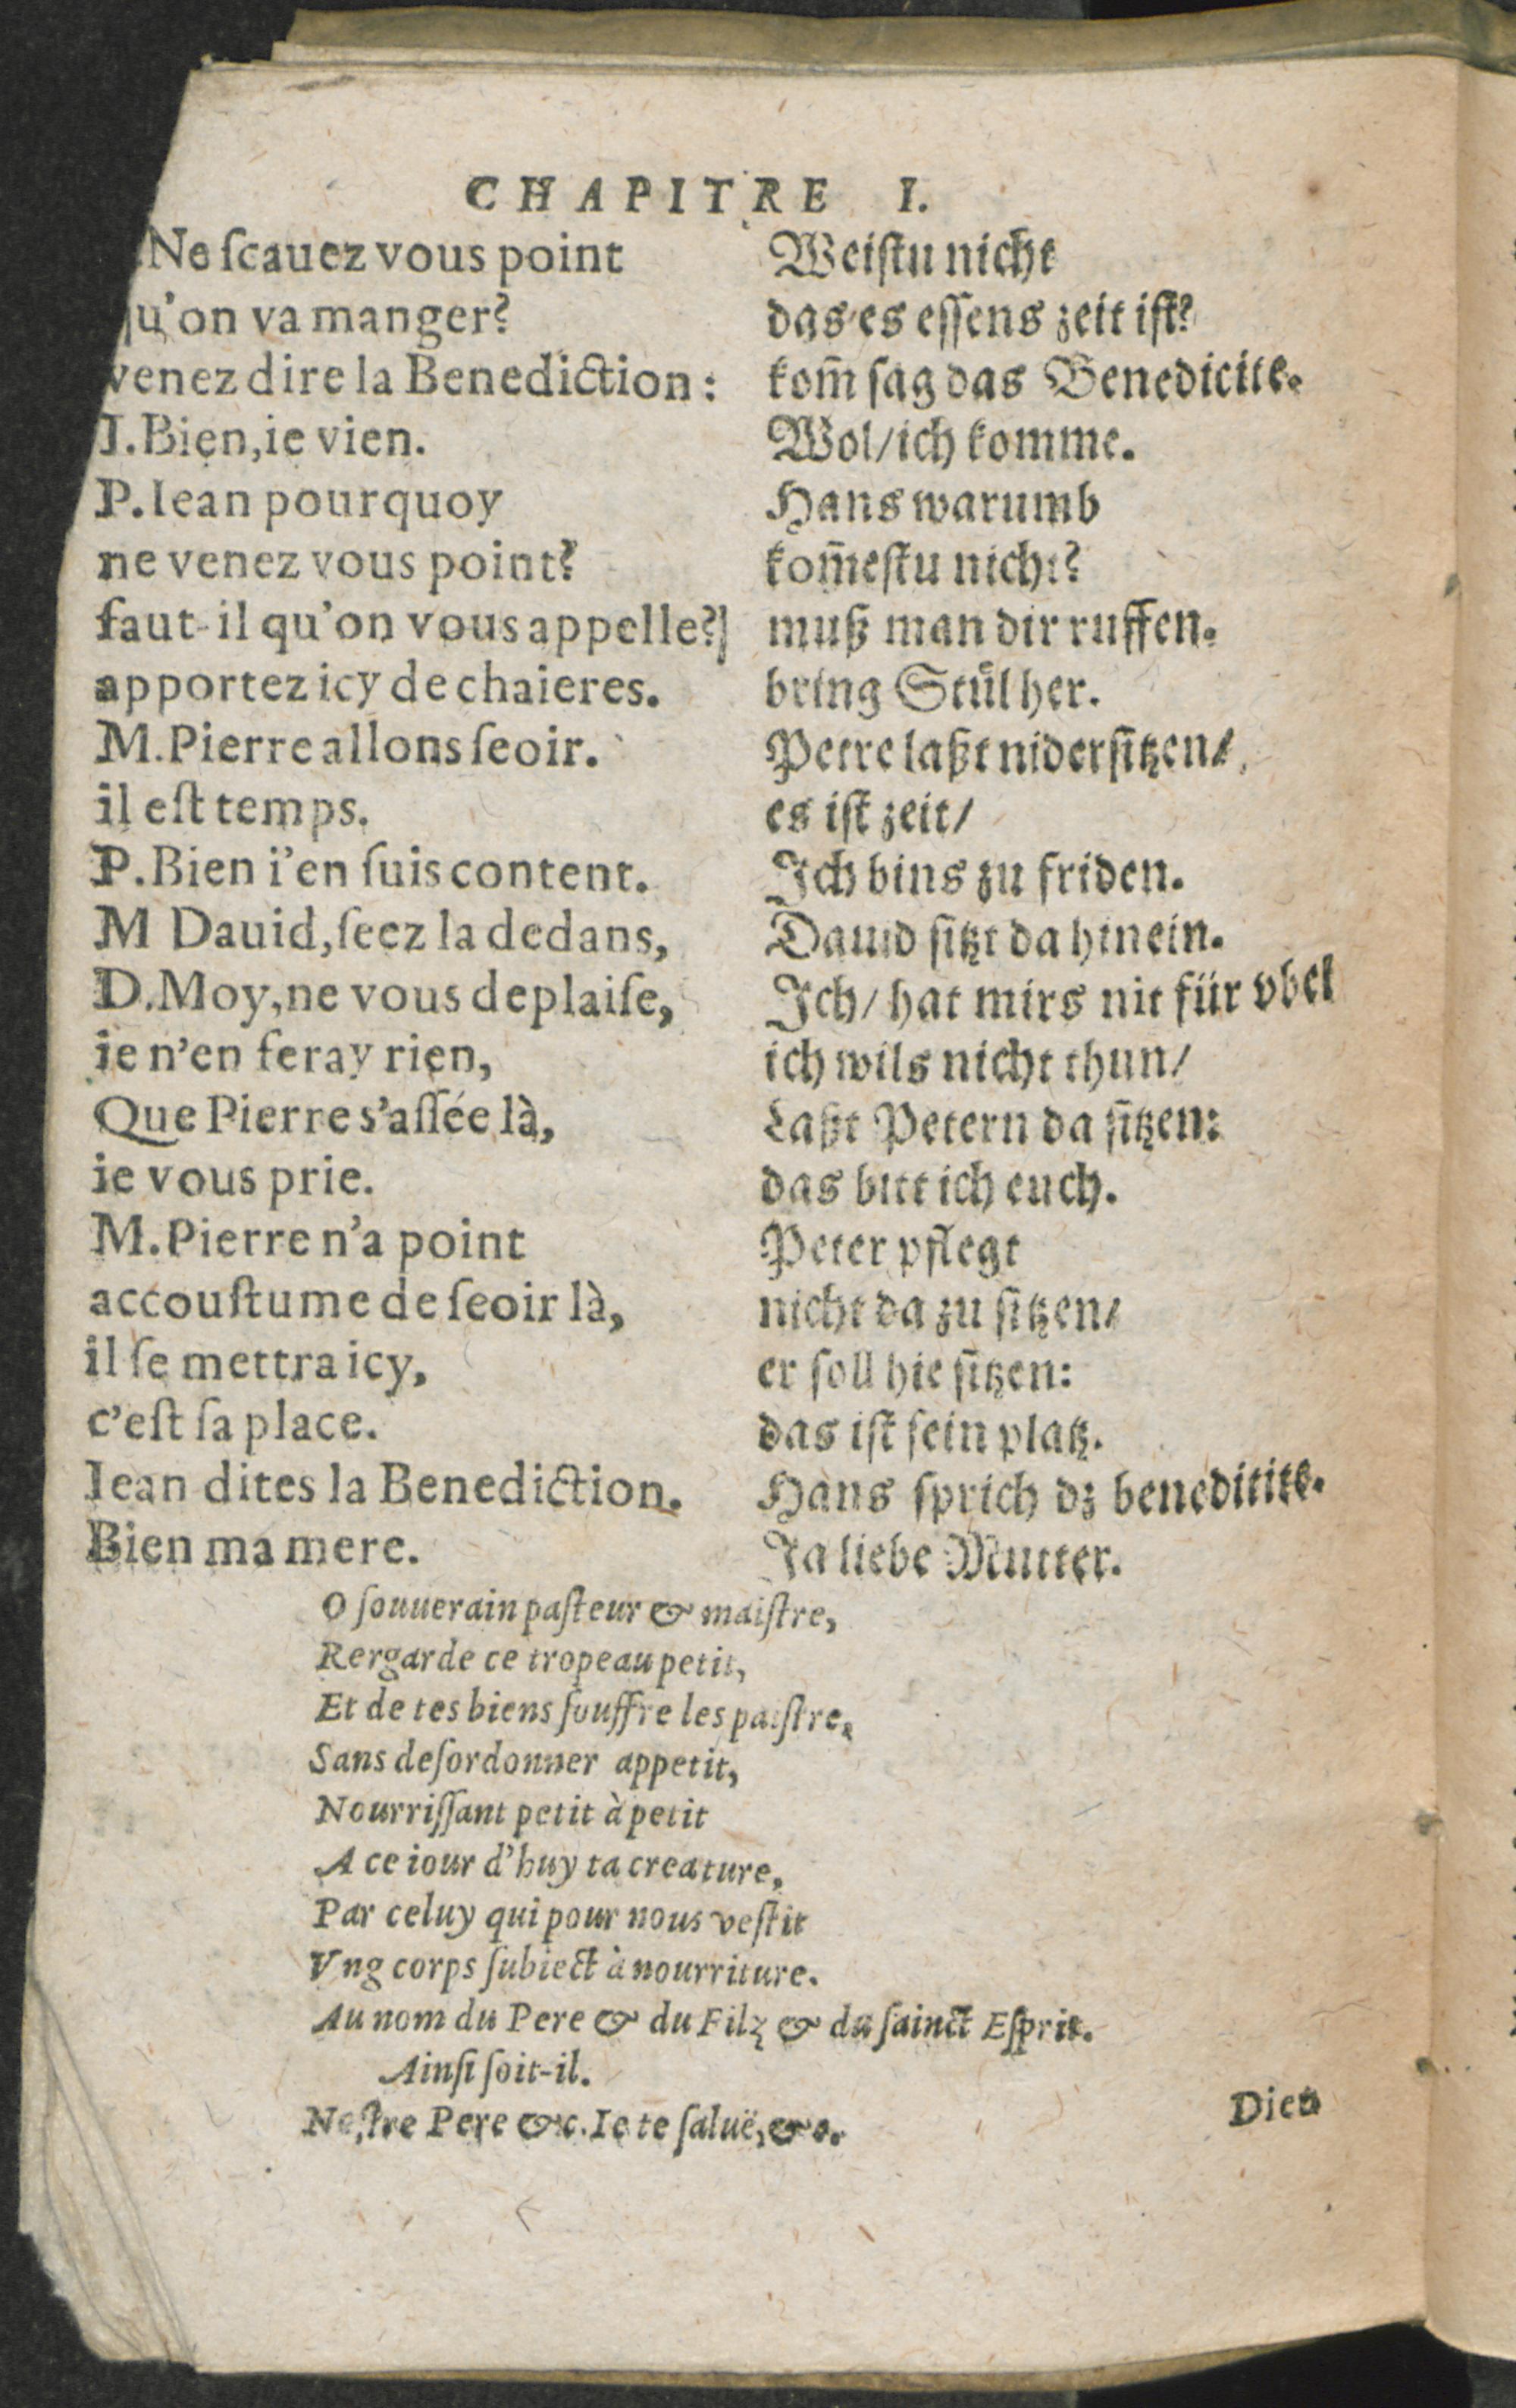 CHAPITRE I.
Ne ſcauez vous point
qu'on va manger?
venez dire la Benediction:
I. Bien, ie vien.
P. Iean pourquoy
ne venez vous point?
faut-il qu'on vous appelle?]
apportez icy de chaieres.
M. Pierre allons ſeoir.
il eſt temps.
P. Bien i'en ſuis content.
M Dauid, ſeez la dedans,
D. Moy, ne vous deplaiſe,
ie n'en feray rien,
Que Pierre s'aſſée là,
ie vous prie.
M. Pierre n'a point
accouſtume de ſeoir là,
il ſe mettra icy,
c'eſt ſa place.
Iean dites la Benediction.
Bien ma mere.
Weiſtu nicht
das es eſſens zeit iſt?
kom̃ ſag das Benedicite.
Wol/ ich komme.
Hans warumb
kom̃eſtu nicht?
muß man dir ruffen.
bring Stül her.
Petre laßt niderſitzen/
es iſt zeit/
Ich bins zu friden.
Dauid ſitzt da hinein.
Ich/ hat mirs nit für vbel
ich wils nicht thun/
Laßt Petern da ſitzen:
das bitt ich euch.
Peter pflegt
nicht da zu ſitzen/
er ſoll hie ſitzen:
das iſt ſein platz.
Hans ſprich dz beneditite.
Ja liebe Mutter.
O ſouuerain paſteur & maiſtre,
Rergarde ce tropeau petit,
Et de tes biens ſouffre les paiſtre,
Sans deſordonner appetit,
Nourriſſant petit à petit
A ce iour d'huy ta creature,
Par celuy qui pour nous veſtit
Vng corps ſubiect à nourriture.
Au nom du Pere & du Filz & du ſainct Eſprit.
Ainſi ſoit-il.
Noſtre Pere &c. Ie te ſaluë, &c.
Dieu